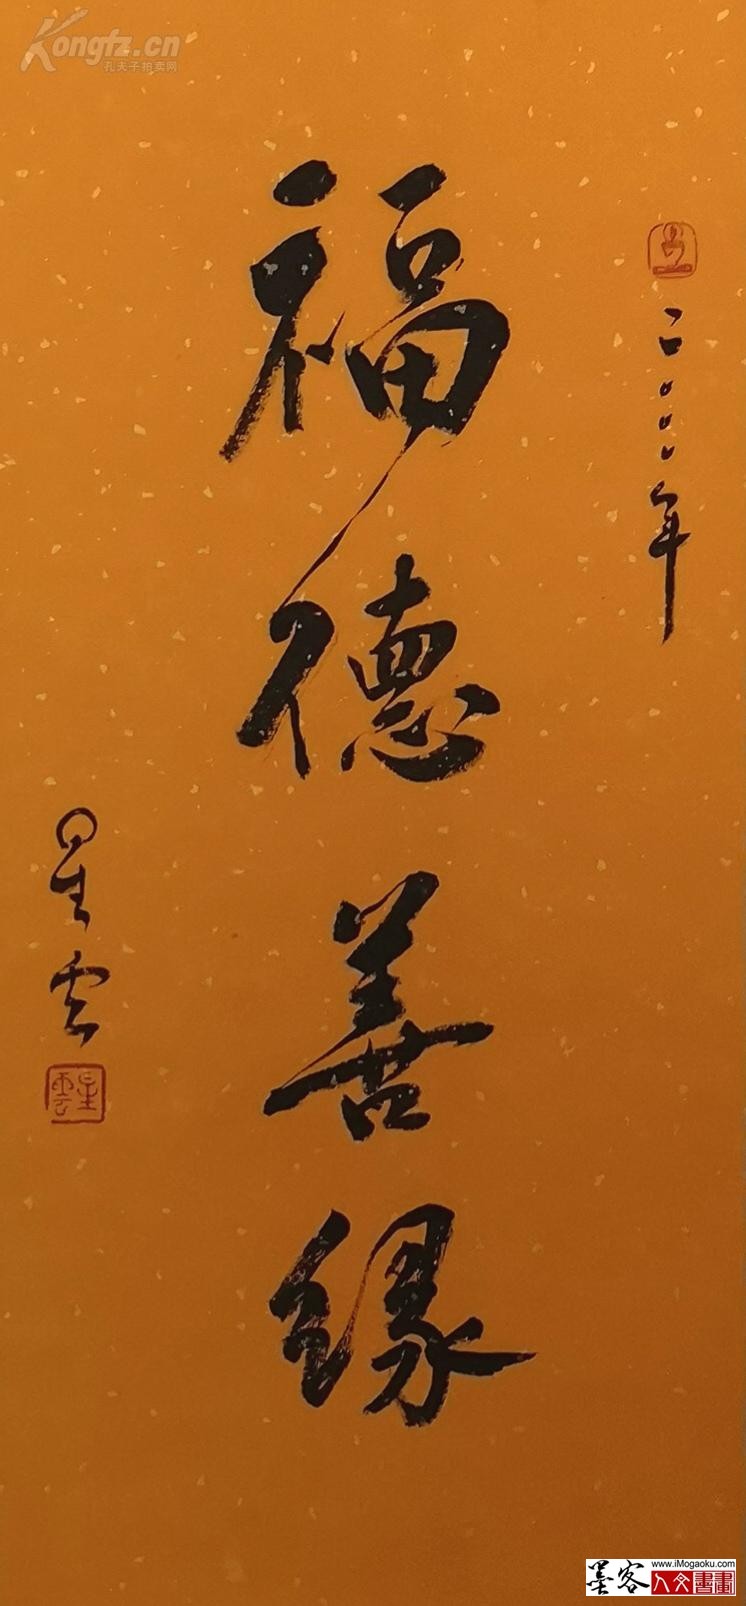 Kongfz.cn
孔夫子拍卖网
二〇〇〇年
福德善缘
星云
星雲
墨客
www.iMogaoku.com
人文書畫